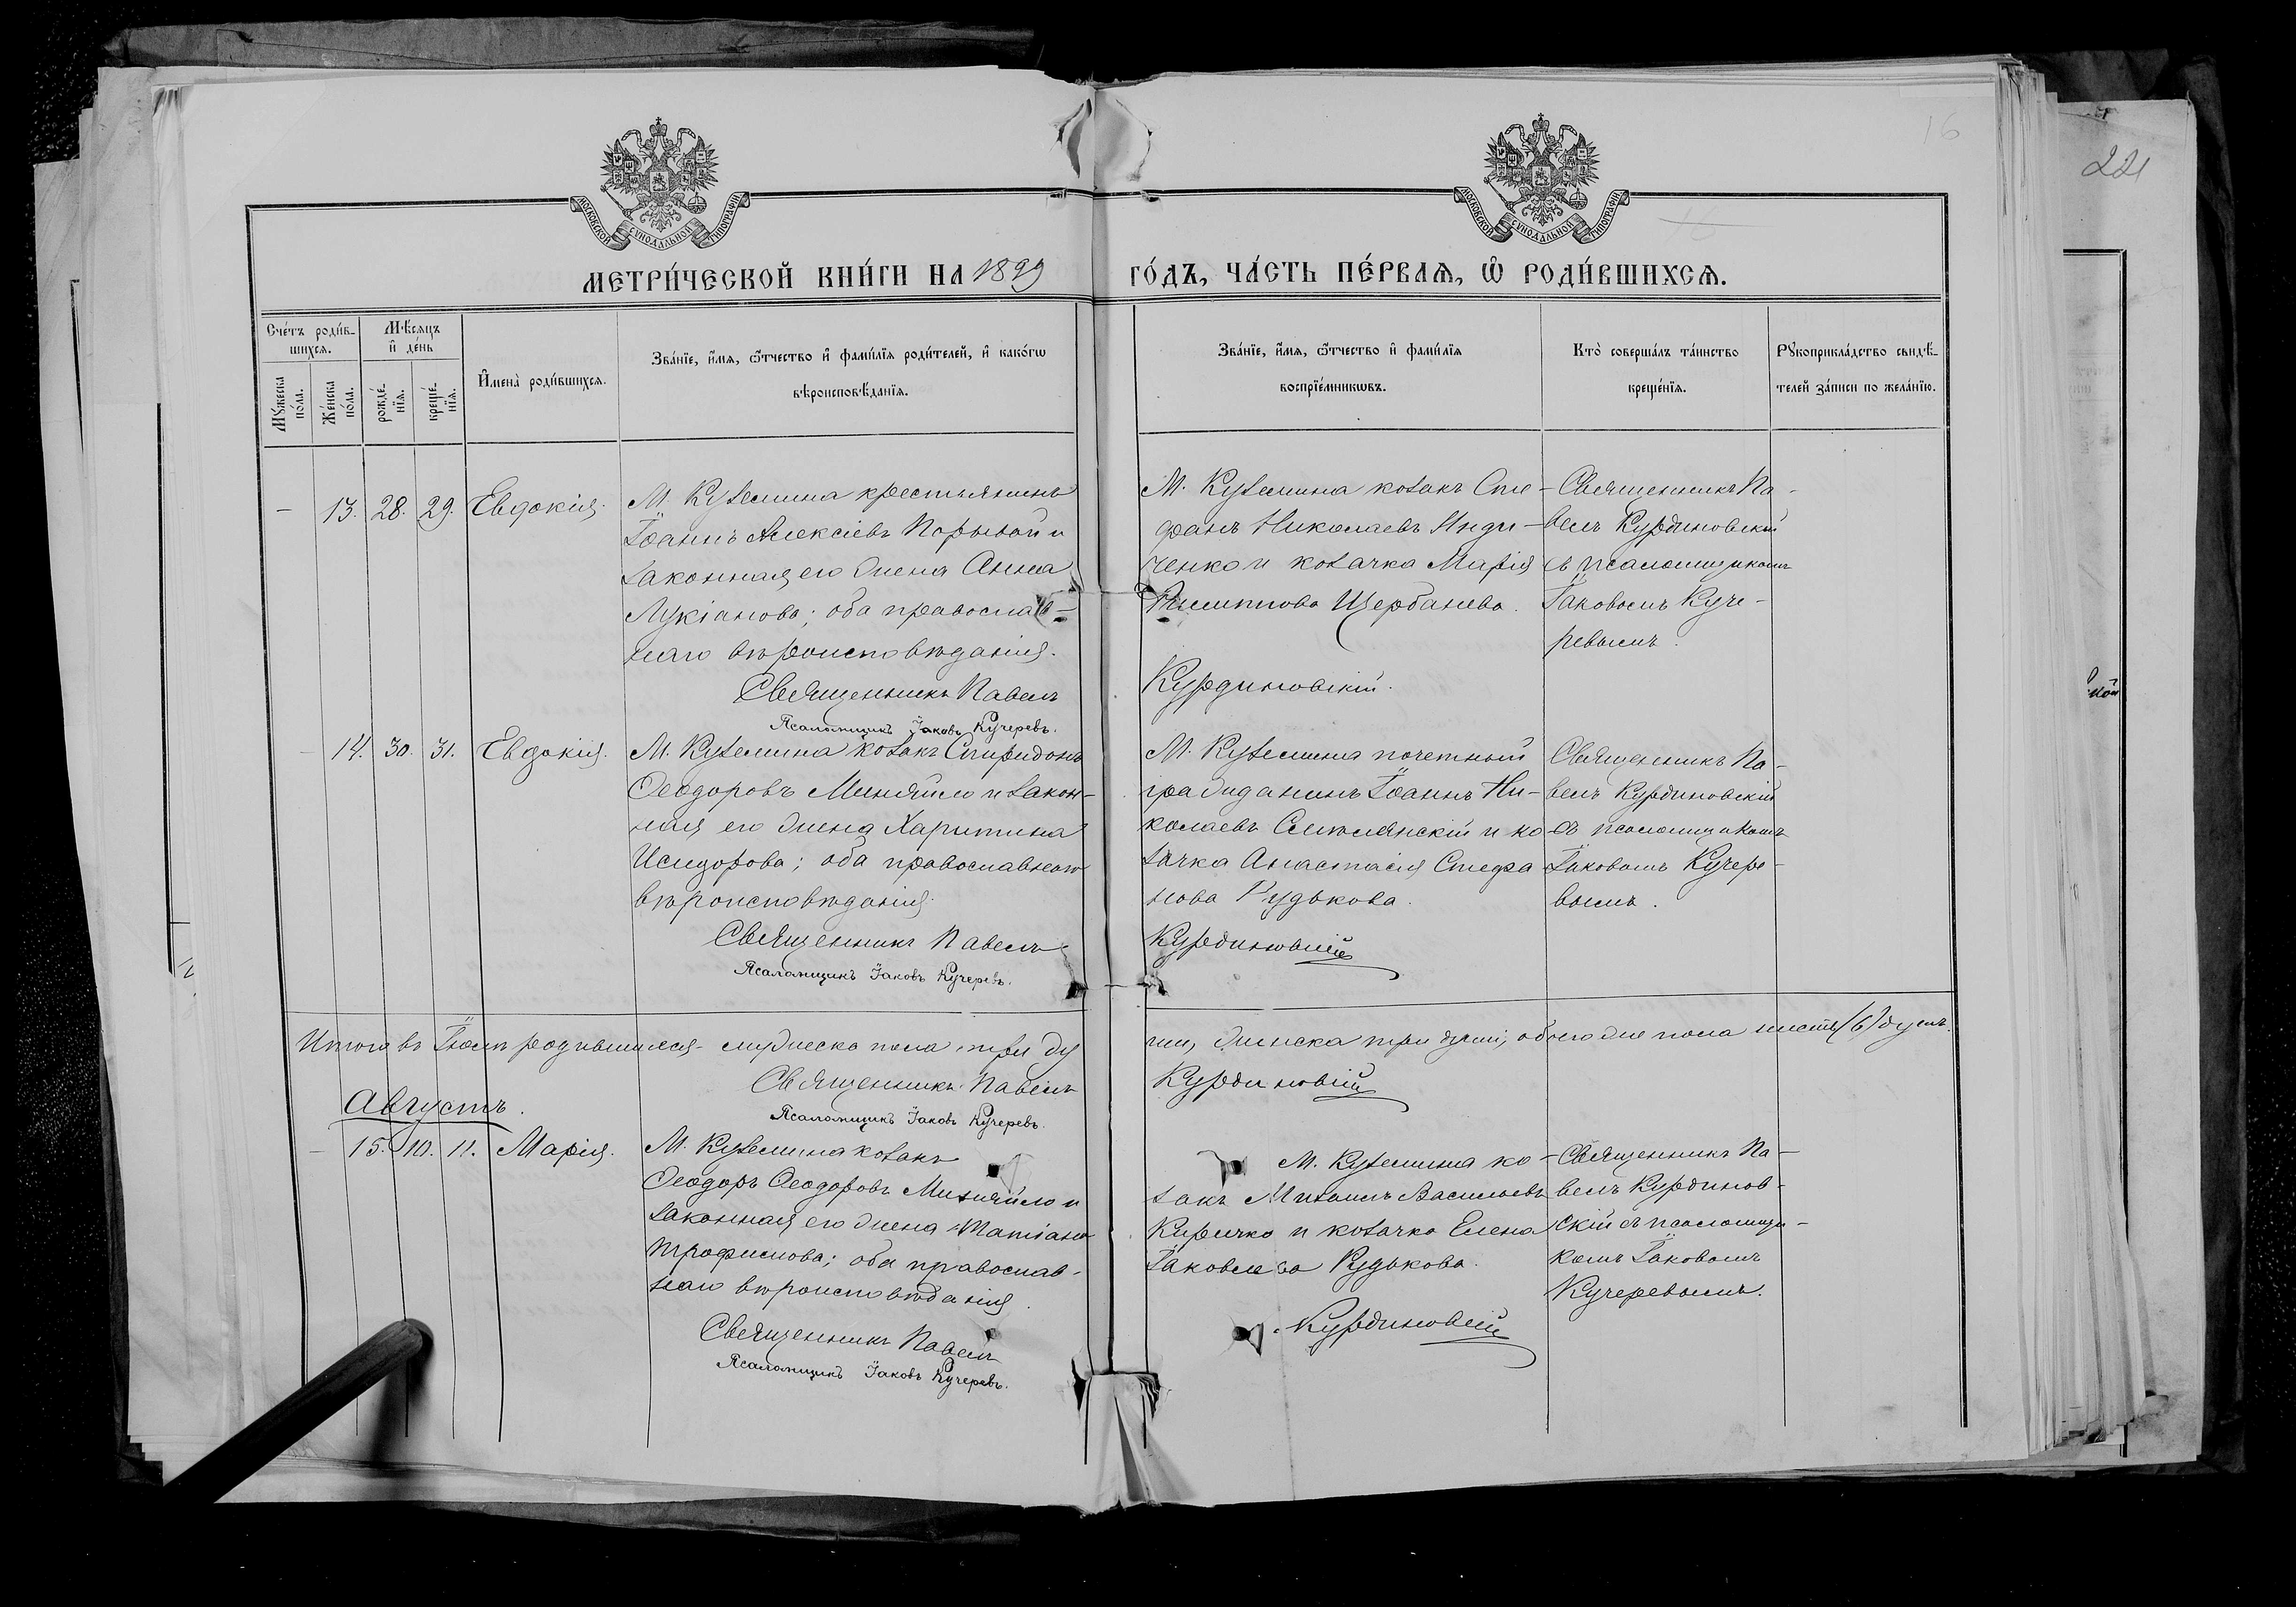 16
221
МОСКОВСКОЙ СУНОДАЛЬНОЙ ТИПОГРАФІИ
МОСКОВСКОЙ СУНОДАЛЬНОЙ ТИПОГРАФІИ
МЕТРИ́ЧЕСКОЙ КНИ́ГИ НА 1899
ГО́ДЪ, ЧА́СТЬ ПЕ́РВАѦ, Ѡ҆ РОДИ́ВШИХСѦ.
Сче́тъ роди́в-
шихсѧ.
Мꙋ́жеска по́ла.
Же́нска по́ла.
Мѣ́сѧцъ
и҆ де́нь
рожде́-
нїѧ.
креще́-
нїѧ.
И҆мена̀ роди́вшихсѧ.
Зва́нїе, и҆́мѧ, ѻ҆́тчество и҆ фами́лїѧ роди́телей, и҆ како́гѡ
вѣроисповѣ́данїѧ.
Зва́нїе, и҆́мѧ, ѻ҆́тчество и҆ фами́лїѧ
воспрїе́мникѡвъ.
Кто̀ соверша́лъ та́инство
креще́нїѧ.
Рꙋкоприкла́дство свидѣ́-
телей за́писи по жела́нїю.
– 13. 28. 29. Евдокія.
М. Куземина крестьянинъ
Іоаннъ Алексіевъ Порывай и
законная его жена Анна
Лукіанова; оба православ-
наго вѣроисповѣданія.
Священникъ Павелъ
Псаломщикъ Іаковъ Кучеревъ.
М. Куземина козакъ Сте-
фанъ Николаевъ Инди-
ченко и козачка Марія
Филиппова Щербанева.
Курдиновскій.
Священникъ Па-
велъ Курдиновскій
съ псаломщикомъ
Іаковомъ Куче-
ревымъ.
– 14. 30. 31. Евдокія.
М. Куземина козакъ Спиридонъ
Ѳеодоровъ Миняйло и закон-
ная его жена Харитина
Исидорова; оба православнаго
вѣроисповѣданія.
Священникъ Павелъ
Псаломщикъ Іаковъ Кучеревъ.
М. Куземина почетный
гражданинъ Іоаннъ Ни-
колаевъ и ко
зачка Анастасія Стефа
нова Рудькова.
Курдиновскій
Священникъ Па-
велъ Курдиновскій
съ псаломщикомъ
Іаковомъ Кучере-
вымъ.
Итого въ Іюлѣ родившихся – мужеска пола три ду
ши, женска три души, обоего же пола шесть (6) душъ.
Священникъ Павелъ
Курдиновскій
Псаломщикъ Іаковъ Кучеревъ.
Августъ.
– 15. 10. 11. Марія.
М. Куземина козакъ
Ѳеодоръ Ѳеодоровъ Миняйло и
законная его жена Татіана
Трофимова; оба православ-
наго вѣроисповѣданія.
Священникъ Павелъ
Псаломщикъ Іаковъ Кучеревъ.
М. Куземина ко-
закъ Михаилъ Васильевъ
Киричко и козачка Елена
Іаковлева Рудькова.
Курдиновскій
Священникъ Па-
велъ Курдинов-
скій съ псаломщи-
комъ Іаковомъ
Кучеревымъ.